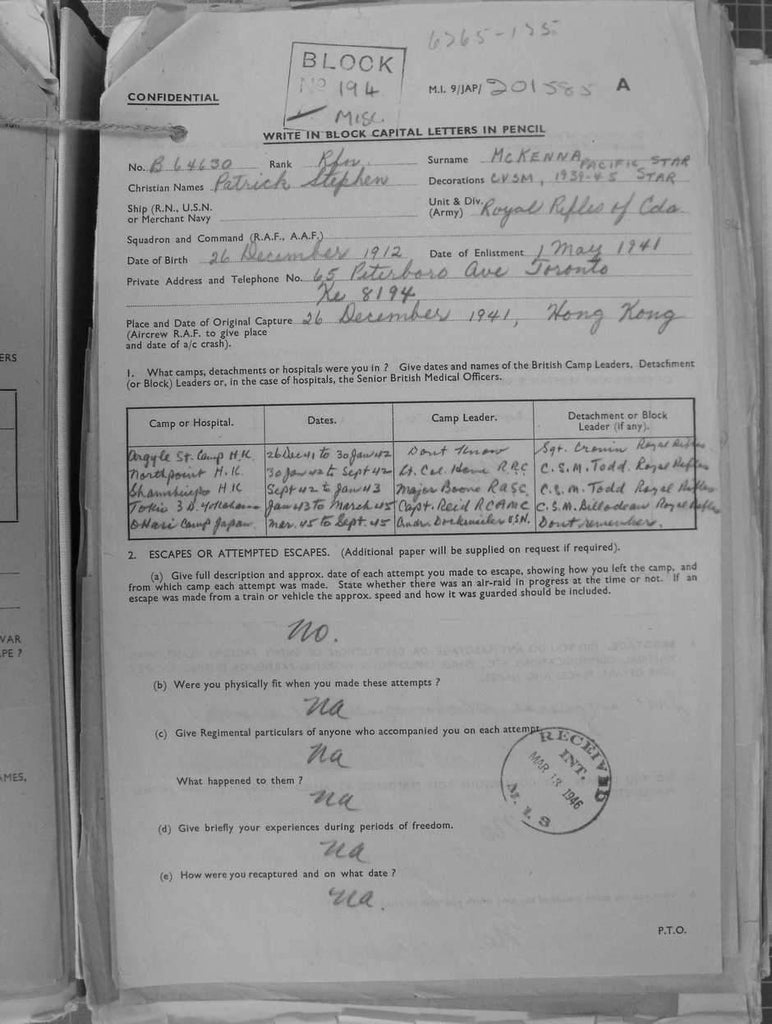 6265-135
BLOCK
No 194
Misc.
CONFIDENTIAL
M.I. 9/JAP/ 201585 A
WRITE IN BLOCK CAPITAL LETTERS IN PENCIL
No. B 64630 Rank Rfn. Surname McKENNA
Christian Names Patrick Stephen Decorations CVSM, 1939-45 STAR PACIFIC STAR
Ship (R.N., U.S.N. or Merchant Navy
Unit & Div. (Army) Royal Rifles of Cda.
Squadron and Command (R.A.F., A.A.F.)
Date of Birth 26 December 1912 Date of Enlistment 1 May 1941
Private Address and Telephone No. 65 Peterboro Ave Toronto
Ke 8194
Place and Date of Original Capture 26 December 1941, Hong Kong
(Aircrew R.A.F. to give place
and date of a/c crash).
1. What camps, detachments or hospitals were you in ? Give dates and names of the British Camp Leaders, Detachment
(or Block) Leaders or, in the case of hospitals, the Senior British Medical Officers.
Camp or Hospital. Dates. Camp Leader. Detachment or Block Leader (if any).
Argyle St. Camp H.K. 26 Dec 41 to 30 Jan 42 Dont Know Sgt. Cronin Royal Rifles
Northpoint H.K. 30 Jan 42 to Sept 42 Lt. Col. Home R.R.C. C.S.M. Todd. Royal Rifles
Shamshuipo H.K Sept 42 to Jan 43 Major Boone RASC. C.S.M. Todd Royal Rifles
Tokio 3 D. Yokohama Jan 43 to March 45 Capt. Reid RCAMC C.S.M. Billodeau Royal Rifles
OHasi Camp Japan. Mar. 45 to Sept. 45 U.S.N. Dont remember.
2. ESCAPES OR ATTEMPTED ESCAPES. (Additional paper will be supplied on request if required).
(a) Give full description and approx. date of each attempt you made to escape, showing how you left the camp, and
from which camp each attempt was made. State whether there was an air-raid in progress at the time or not. If an
escape was made from a train or vehicle the approx. speed and how it was guarded should be included.
No.
(b) Were you physically fit when you made these attempts ?
na
(c) Give Regimental particulars of anyone who accompanied you on each attempt.
na
What happened to them ?
na
RECEIVED
INT.
MAR 13 1946
M. I. 9
(d) Give briefly your experiences during periods of freedom.
na
(e) How were you recaptured and on what date ?
na.
P.T.O.
ERS
VAR
PE ?
MES,